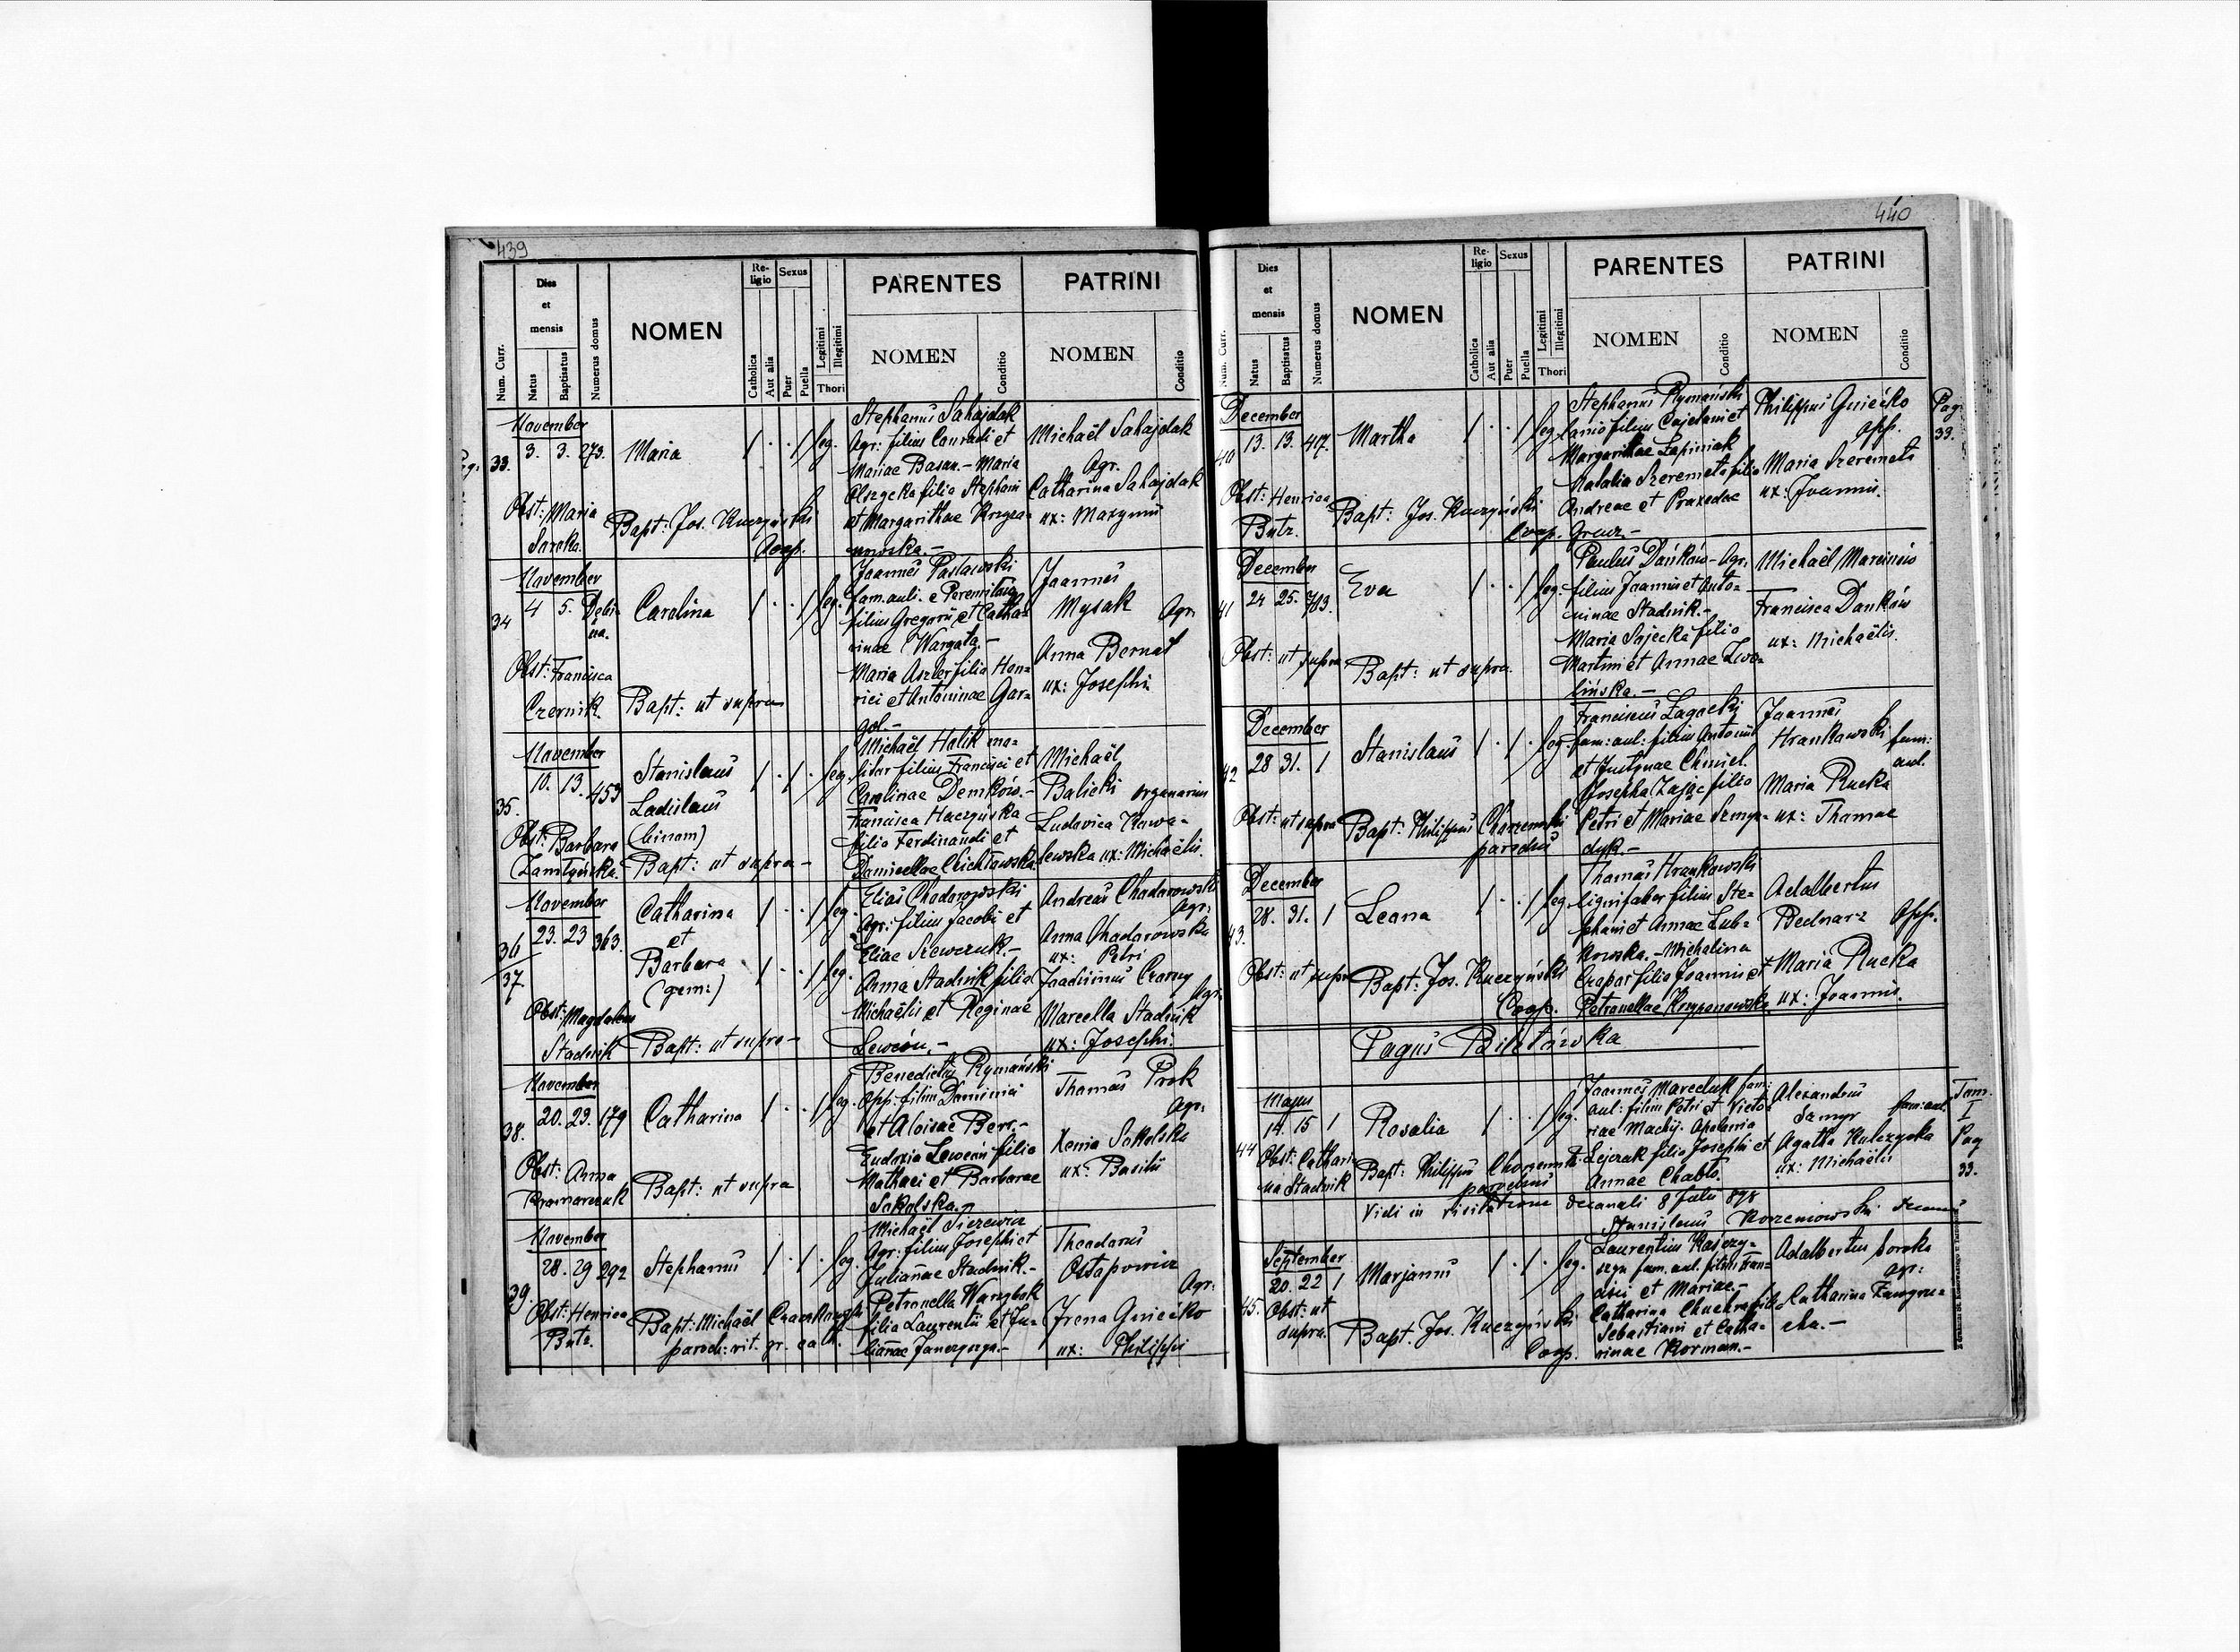 439
Num. Curr.
Dies et mensis
Natus
Baptisatus
Numerus domus
NOMEN
Religio
Catholica
Aut alia
Sexus
Puer
Puella
Legitimi
Illegitimi
Thori
PARENTES
NOMEN
Conditio
PATRINI
NOMEN
Conditio
33.
November
3. 3. 273.
Maria
leg.
Stephanus Sahajdak
Agr: filius Conradi et
Mariae Basan.- Maria
filia Stephani
et Margarithae
Michaël Sahajdak
Agr.
Catharina Sahajdak
ux: Maxymi
Obst: Maria
Bapt: Jos. Kuczyński
Coop.
34
November
4 5.
Carolina
leg.
Joannes Pasławski
fam. auli.
filius Gregorii et Catha-
rinae Wargata.-
Maria filia Hen-
rici et Antoninae Gar-
gol.-
Joannes
Mysak Agr.
Anna Bernat
ux: Josephi
Obst: Francisca
Czernik.
Bapt: ut supra
35.
November
10. 13. 453
Stanislaus
Ladislaus
(binom)
leg.
Michaël Halik mo-
litor filius Francisci et
Carolinae Demków.-
Francisca Huczyńska
filia Ferdinandi et
Michaël
Balicki organarius
Ludovica Kowa-
lewska ux: Michaëlis.
Obst: Barbara
Bapt: ut supra-
36/37
November
23. 23 363.
Catharina
et
Barbara
(gem:)
leg.
leg.
Elias Chodorowski
Agr: filius Jacobi et
Eliae Szewczuk.-
Anna Stadnik filia
Michaëlis et Reginae
Lewciów.-
Andreas Chodorowski
Agr:
Anna Chodorowska
ux: Petri
Joachimus Czarny
Agr.
Marcella Stadnik
ux: Josephi.
Obst: Magdalena
Stadnik
Bapt: ut supra-
38.
November
20. 23. 179
Catharina
leg.
Benedictus Rymański
opp: filius Dominici
et Aloisae Berr.-
Eudoxia Lewciów filia
Mathaei et Barbarae
Sokolska.-
Thomas Prok
Agr:
Xenia Sokolska
ux: Basilii
Obst: Anna
Kramarczuk
Bapt: ut supra
39.
November
28. 29 292
Stephanus
leg.
Michaël
Agr: filius Josephi et
Julianae Stadnik.-
Petronella Warzybok
filia Laurentii et Ju-
lianae
Theodorus
Ostapowicz
Agr:
Irena Gniećko
ux: Philippi
Obst: Henrica
Butz.
Bapt: Michaël
paroch: rit. gr. cath.
440
Num. Curr.
Dies et mensis
Natus
Baptisatus
Numerus domus
NOMEN
Religio
Catholica
Aut alia
Sexus
Puer
Puella
Legitimi
Illegitimi
Thori
PARENTES
NOMEN
Conditio
PATRINI
NOMEN
Conditio
40
December
13. 13. 417.
Martha
leg.
Stephanus Rymański
lanio filius Cajetani et
Margarithae Łapiniak
Natalia Szeremeta filia
Andreae et Praxedae
Philippus Gniećko
opp.
Maria Szeremeta
ux: Joannis.
Pag:
33.
Obst: Henrica
Butz.
Bapt: Jos. Kuczyński
Coop.
41
December
24 25. 703.
Eva
leg.
Paulus Dańków- Agr.
filius Joannis et Anto-
ninae Stadnik.-
Maria Sajecka filia
Martini et Annae Zwo-
lińska.-
Michaël Marciniów
Francisca Danków
ux: Michaëlis.
Obst: ut supra
Bapt: ut supra.
42
December
28 31. 1
Stanislaus
leg.
Franciscus Zagacki
fam: aul: filius Antonii
et Justynae Chmiel.
Josepha Zając filia
Petri et Mariae Szmyn-
dyk.-
Joannes
Hrankowski fam:
aul.
Maria Rucka
ux: Thomae
Obst: ut supra
Bapt: Philippus Chorzemski
parochus
43.
December
28. 31. 1
Leona
leg.
Thomas Hrankowski
lignifaber filius Ste-
phani et Annae Lub-
kowska.- Michalina
Czapar filia Joannis et
Petronellae
Adalbertus
Bednarz opp.
Maria Rucka
ux: Joannis.
Obst: ut supra
Bapt: Jos. Kuczyński
Coop.
Pagus Biletówka
44
Majus
14. 15 1
Rosalia
leg.
Joannes Mareczuk fam:
aul: filius Petri et Victo-
riae Apolonia
Lejczak filia Josephi et
Annae
Alexandrus
Szmyr fam: aul.
Agatha Kulczycka
ux: Michaëlis
Tom.
I
Pag
33.
Obst: Cathari-
na Stadnik
Bapt: Philippus Chorzemski
parochus
Vidi in visitatione decanali 8 Julii 898
Stanislaus Korzeniowski
45.
September
20. 22 1
Marjanus
leg.
Laurentius
fam. aul. filius Fran-
cisci et Mariae.-
Catharina Chuchra filia
Sebastiani et Catha-
rinae Korman.-
Adalbertus Soroka
agr:
Catharina
Obst: ut
supra.
Bapt. Jos. Kuczyński
Coop.